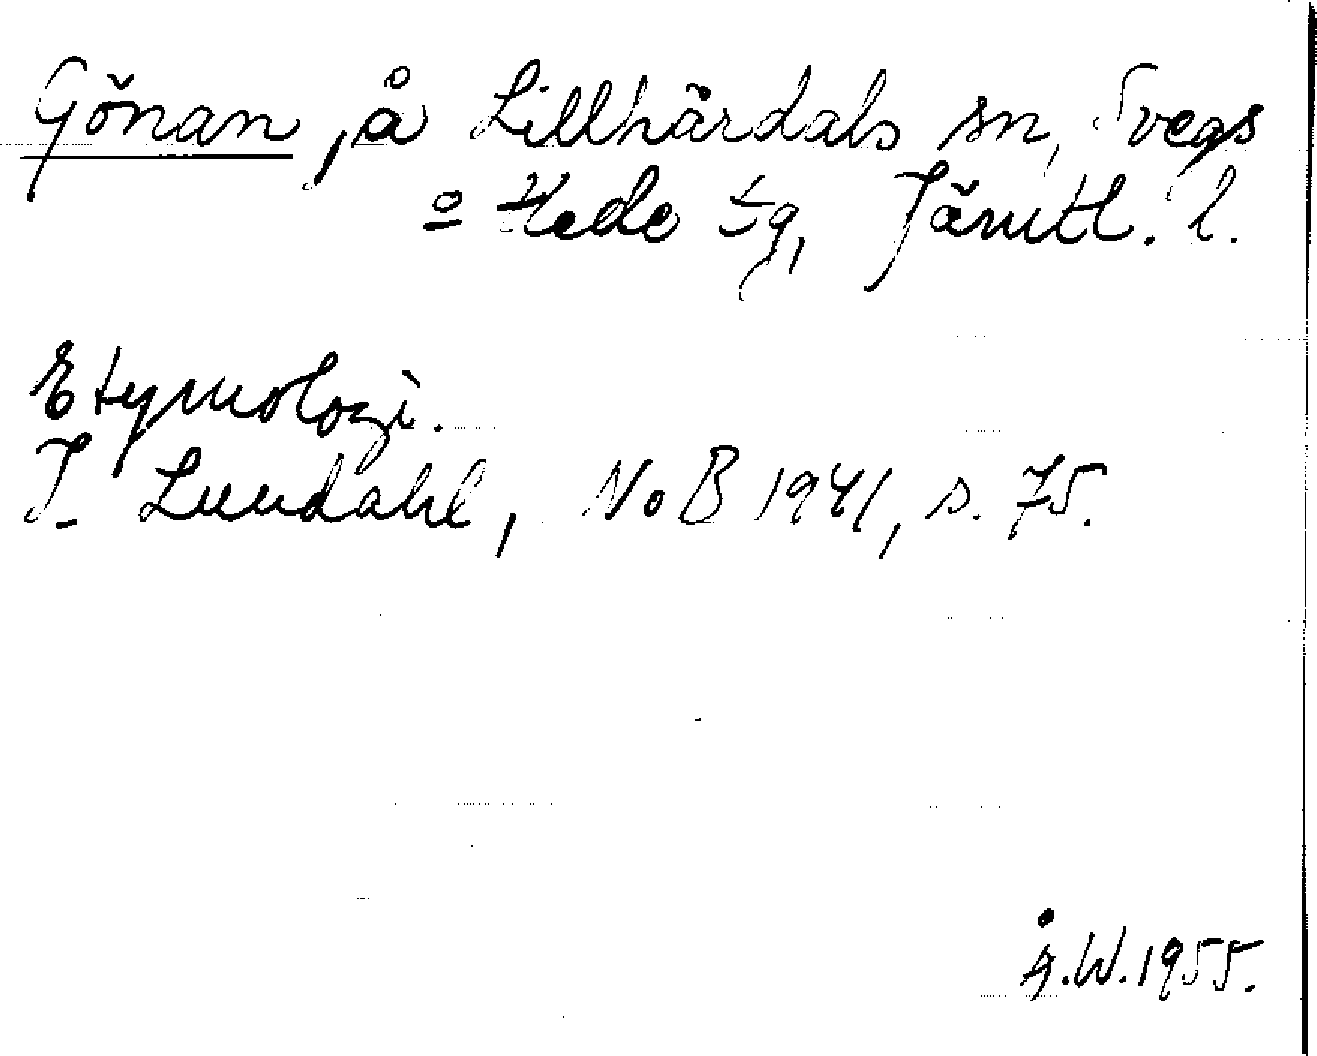 Gönan, å Lillhärdals sn, Svegs
o Hede tg, Jämtl. l.
Etymologi.
I. Lundahl, NoB 1941, s. 75.
Å.W. 1955.